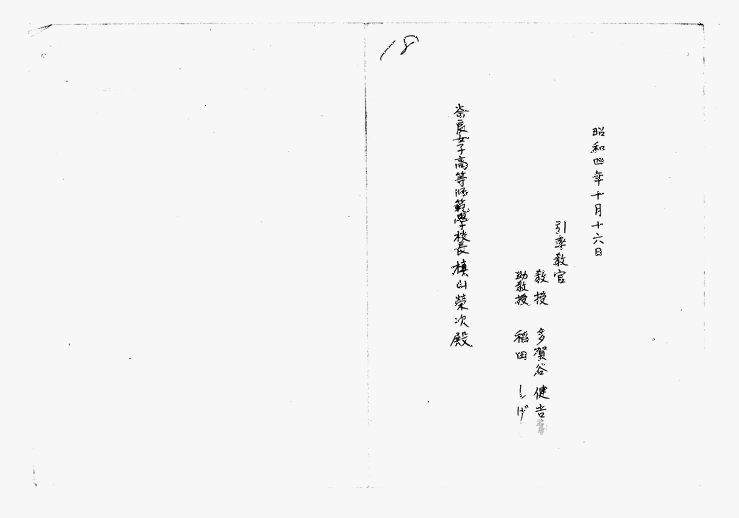 18
昭和四年十月十六日
引率教官
教授 多賀谷健吉
助教授 稲田シゲ
奈良女子高等師範學校長槙山榮次殿